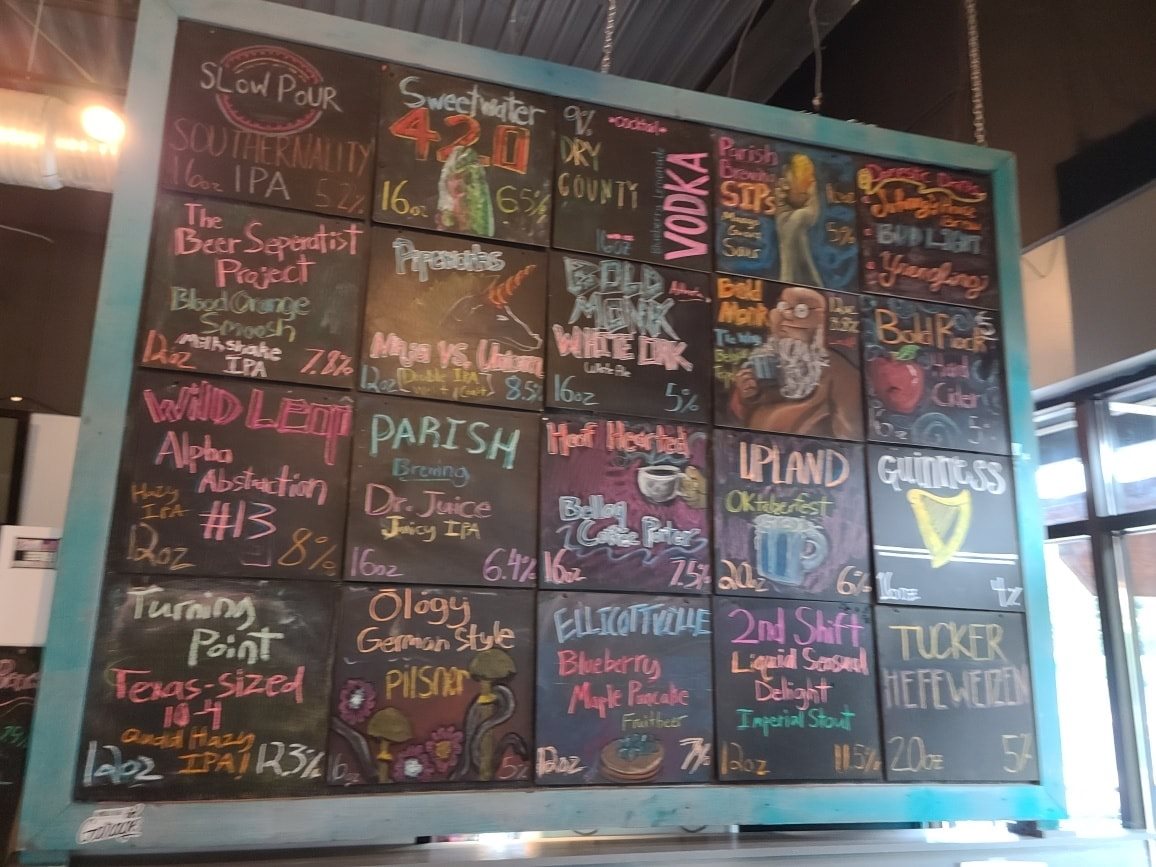 SLOW POUR
SOUTHERNALITY
IPA
16oz 5.2%
Sweetwater
420
16oz 6.5%
9% *cocktail*
DRY
COUNTY
VODKA
16oz
Parish
Brewing
SIPs
Sour
5%
BUD LIGHT
Yuengling
The
Beer Seperatist
Project
Blood Orange
Smoosh
Milkshake
IPA
12oz 7.8%
Pipeworks
Ninja vs. Unicorn
Double IPA
12oz 8.5%
BOLD
MONK
WHITE
White Ale
16oz 5%
Bold
Monk
Bold Rock
Hard
Cider
WILD LEAP
Alpha
Abstraction
Hazy
IPA
#13
12oz 8%
PARISH
Brewing
Dr. Juice
Juicy IPA
16oz 6.4%
Hoof Hearted
Coffee Porter
16oz 7.5%
UPLAND
Oktoberfest
20oz 6%
GUINNESS
16oz 4%
Turning
Point
Texas-sized
10-4
Quad Hazy
IPA!
12oz 12.3%
Ology
German Style
Pilsner
16oz 5%
ELLICOTTVILLE
Blueberry
Maple Pancake
Fruitbeer
12oz 7%
2nd Shift
Liquid Sensual
Delight
Imperial Stout
12oz 11.5%
TUCKER
HEFEWEIZEN
20oz 5%
Garage